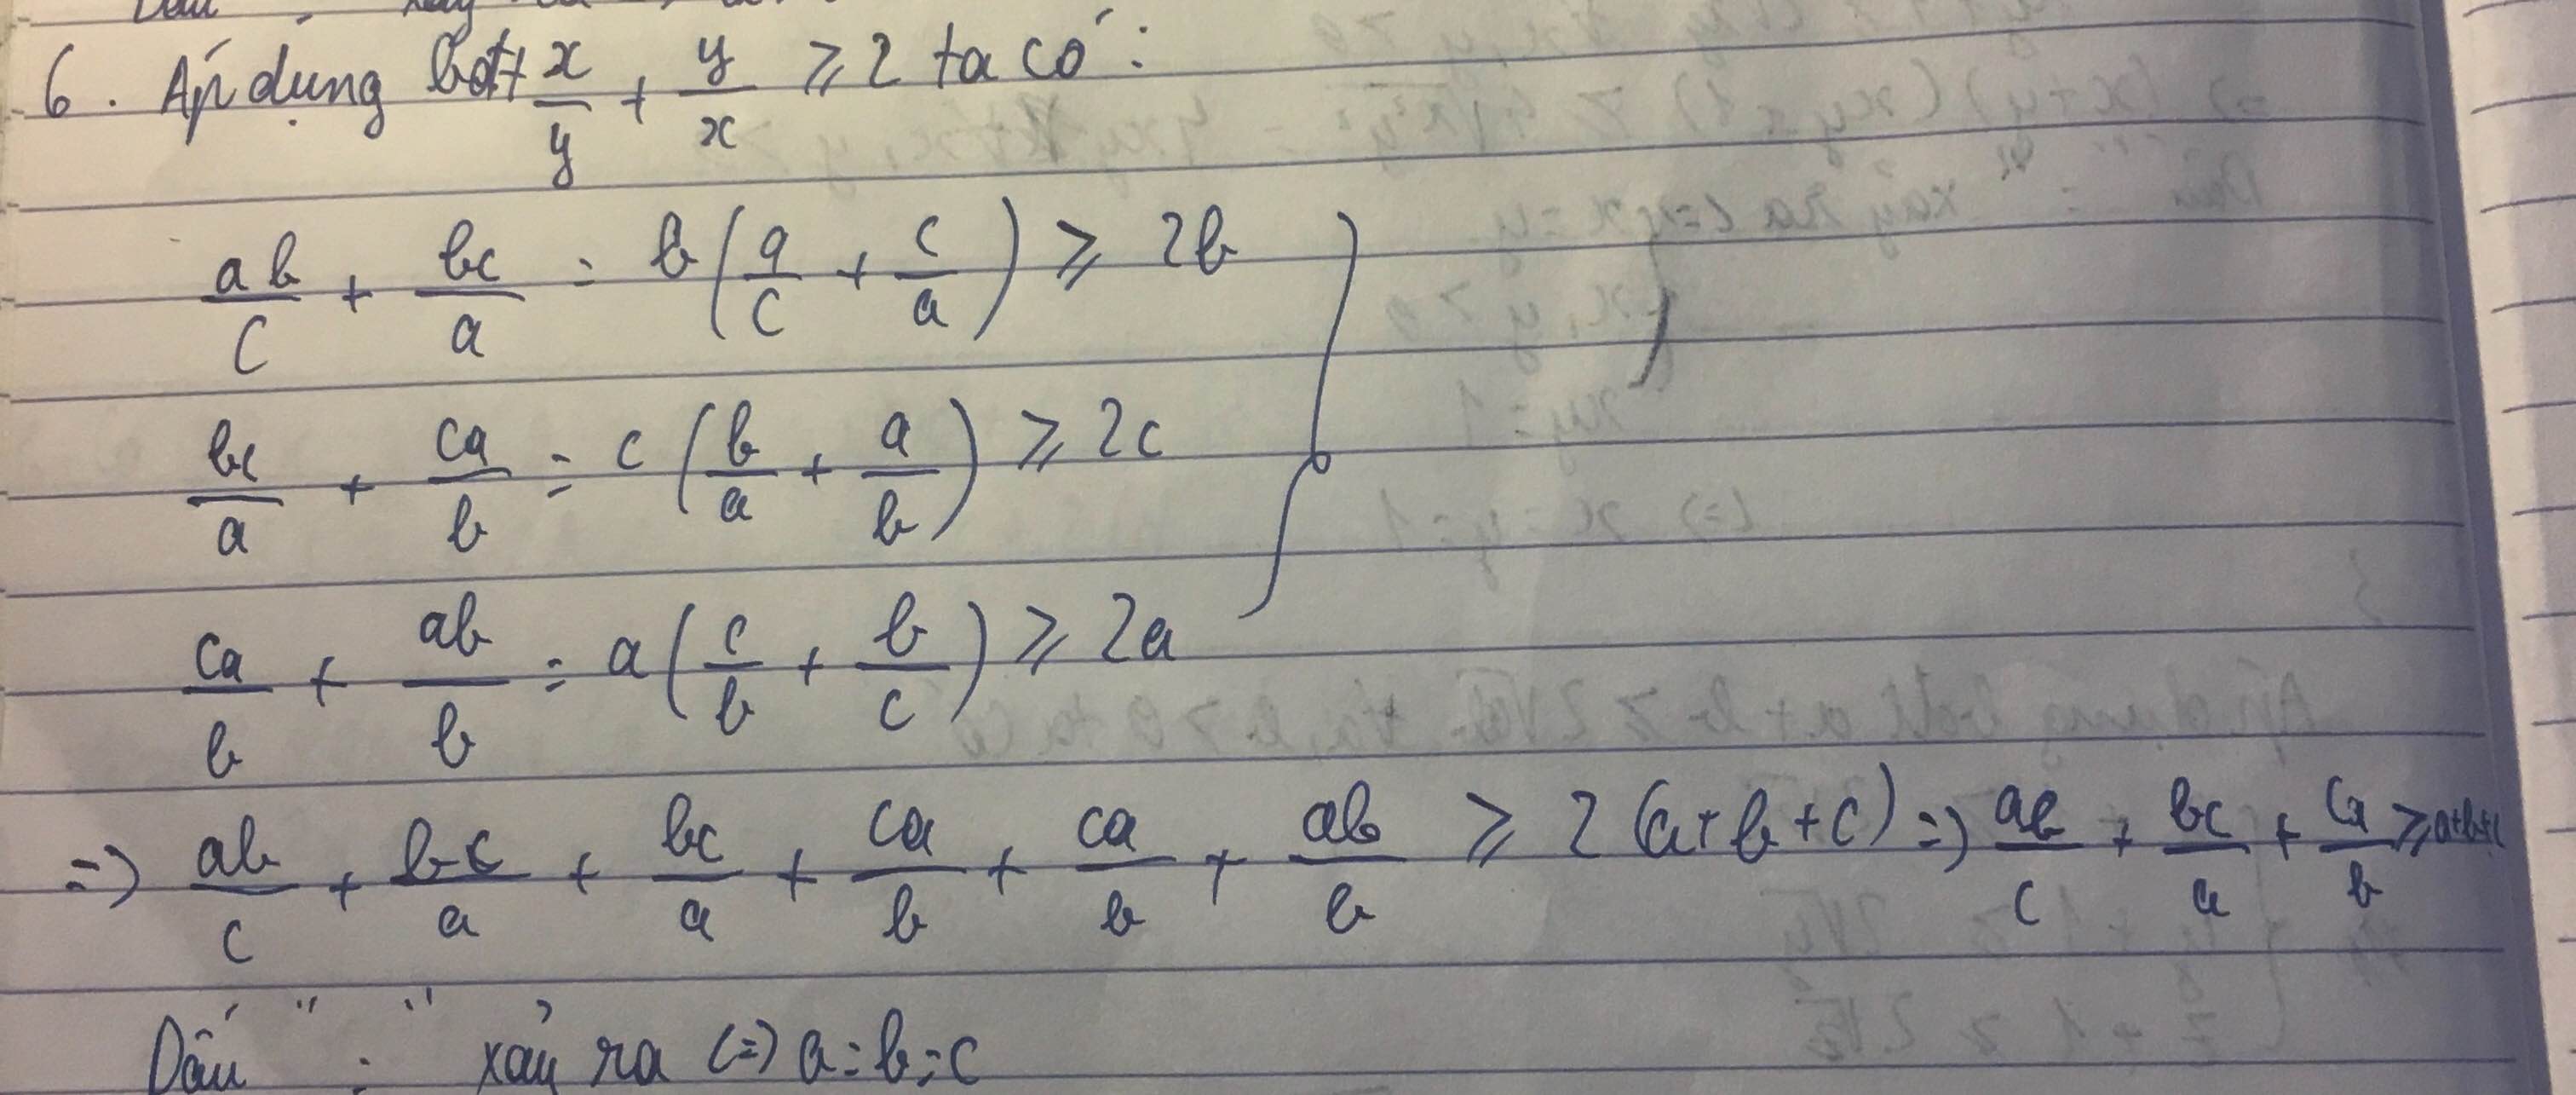 6. Áp dụng bđt x/y + y/x ⩾ 2 ta có:
ab/c + bc/a = b(a/c + c/a) ⩾ 2b
bc/a + ca/b = c(b/a + a/b) ⩾ 2c
ca/b + ab/b = a(c/b + b/c) ⩾ 2a
=> ab/c + bc/a + bc/a + ca/b + ca/b + ab/b ⩾ 2(a+b+c) => ab/c + bc/a + ca/b ⩾ a+b+c
Dấu "=" xảy ra <=> a=b=c